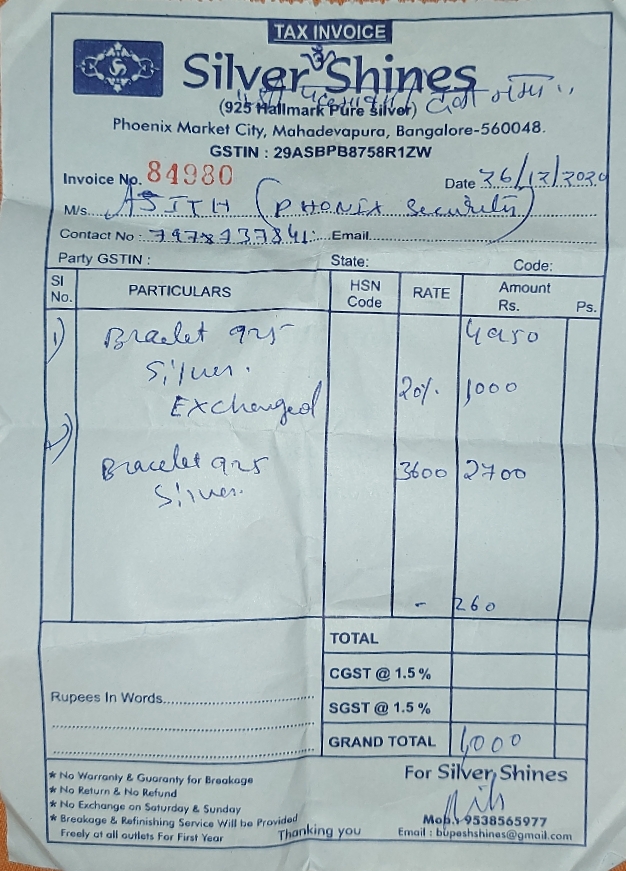 TAX INVOICE
Silver Shines
(925 Hallmark Pure silver)
Phoenix Market City, Mahadevapura, Bangalore-560048.
GSTIN : 29ASBPB8758R1ZW
Invoice No. 84980
Date 26/12/2020
M/s. AJITH (PHONIX Security)
Contact No : Email
Party GSTIN : State: Code:
SI No. PARTICULARS HSN Code RATE Amount Rs. Ps.
1) Bracelet 925
Silver.
20% 1,000
Exchanged
2)
Bracelet 925 3600 2700
Silver.
- 260
TOTAL
CGST @ 1.5 %
Rupees In Words
SGST @ 1.5 %
GRAND TOTAL 1,000
For Silver Shines
* No Warranty & Guaranty for Breakage
* No Return & No Refund
* No Exchange on Saturday & Sunday
* Breakage & Refinishing Service Will be Provided
Freely at all outlets For First Year
Thanking you
Mob.: 9538565977
Email : bupeshshines@gmail.com